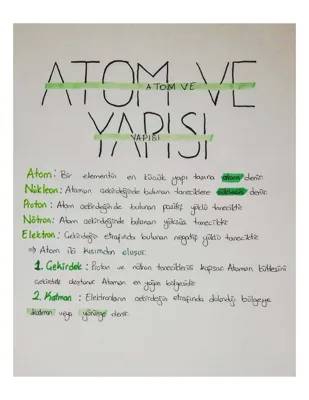 ATOM VE
ATOM VE
YAPISI
YAPISI
Atom: Bir elementin en küçük yapı taşına atom denir.
Nükleon: Atomun çekirdeğinde bulunan taneciklere nükleon denir.
Proton: Atom çekirdeğinde bulunan pozitif yüklü taneciktir.
Nötron: Atom çekirdeğinde bulunan yüksüz taneciktir.
Elektron: Çekirdeğin etrafında bulunan negatif yüklü taneciktir.
⇒ Atom iki kısımdan oluşur.
1. Çekirdek: Proton ve nötron taneciklerini kapsar. Atomun kütlesini
çekirdek oluşturur. Atomun en yoğun bölgesidir.
2. Katman: Elektronların çekirdeğin etrafında dolandığı bölgeye
katman veya yörünge denir.